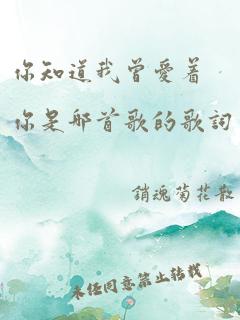 你知道我曾愛着
你是那首歌的歌詞
銷魂菊花散
未经同意禁止转载